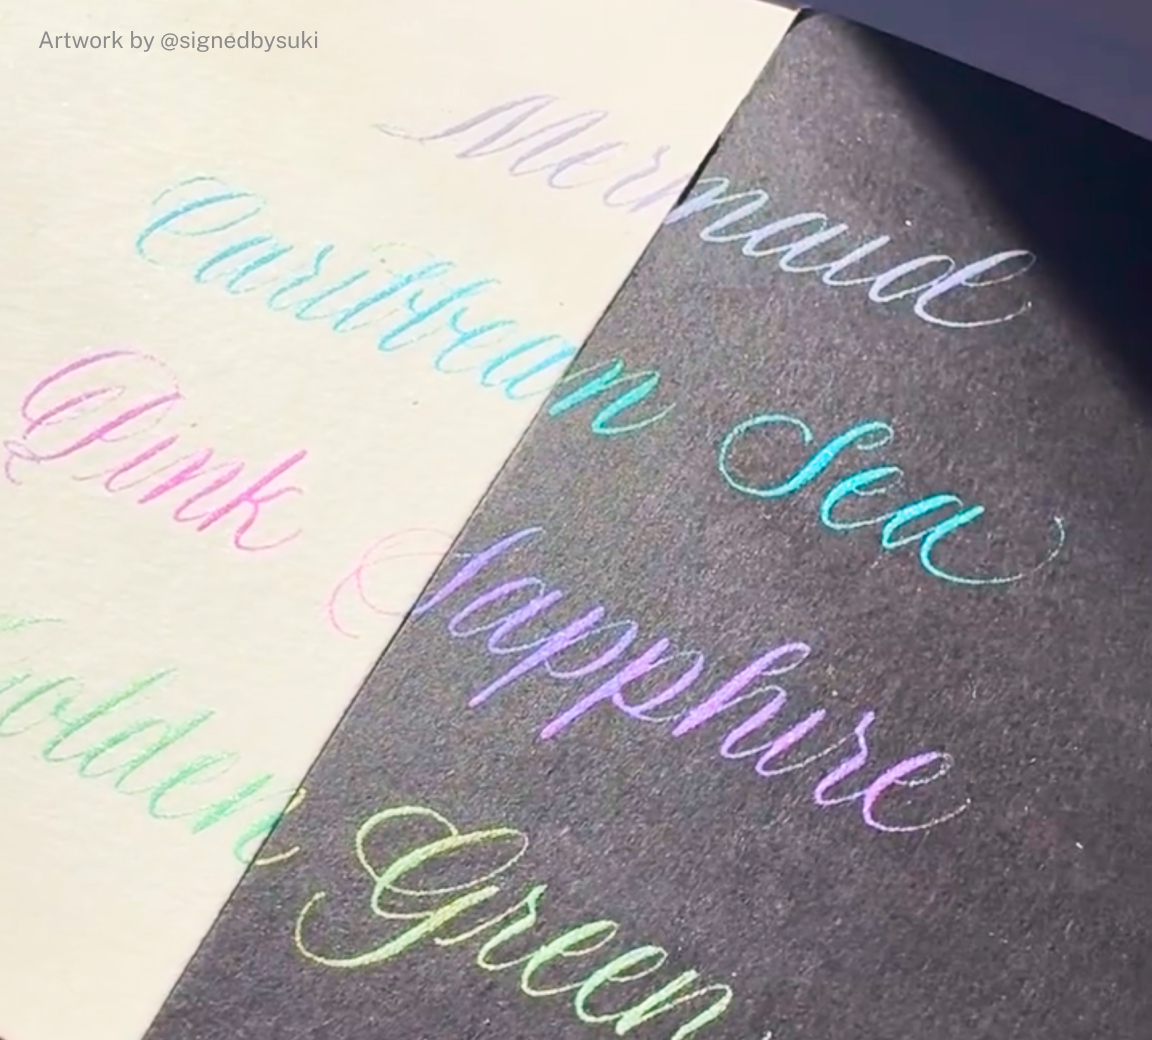 Artwork by @signedbysuki
Mermaid
Caribbean Sea
Pink Sapphire
Golden Green